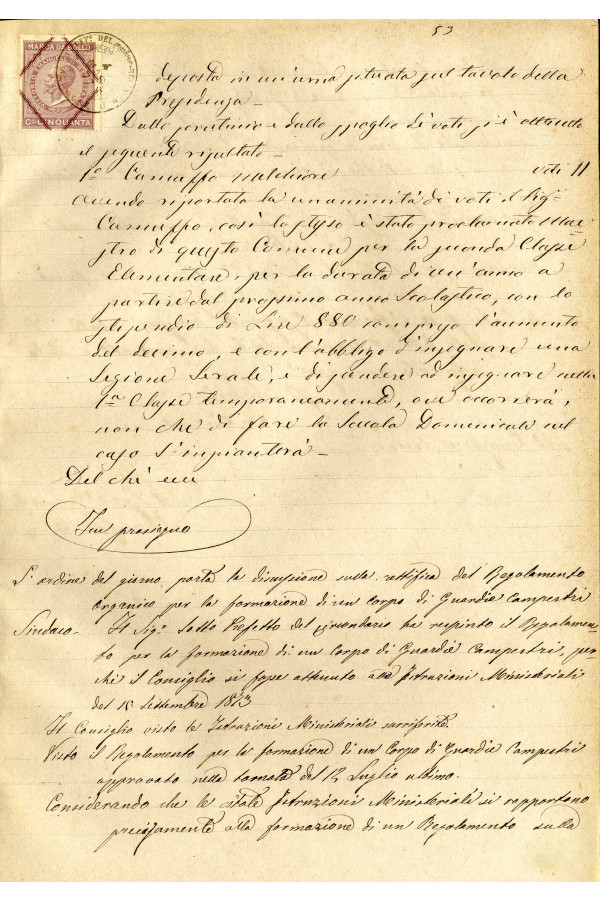 53
MARCA DA BOLLO
Cmi CINQUANTA
deposta in un'urna situata sul tavolo della
Presidenza_
Dallo scrutinio e dallo spoglio di voti si è ottenuto
il seguente risultato_
1º Camuffo Melchiore voti 11
Avendo riportata la unanimità di voti il Sigr
Camuffo, così lo stesso è stato proclamato Mae-
stro di questo Comune per la seconda Classe
Elementare, per la durata di un'anno a
partire dal prossimo anno Scolastico, con lo
stipendio di Lire 880 compreso l'aumento
del decimo, e con l'obbligo d'insegnare una
Sezione Serale, e di scendere ad insegnare nella
1ª Classe temporaneamente, ove occorrerà,
non che di fare la Scuola Domenicale nel
caso s'inpianterà_
Del chè ecc
In prosieguo
L'ordine del giorno porta la discussione sulla rettifica del Regolamento
Organico per la formazione di un Corpo di Guardie Campestri
Sindaco- Il Sigr Sotto Prefetto del Circondario ha respinto il Regolamen-
to per la formazione di un Corpo di Guardie Campestri, per-
chè il Consiglio si fosse attenuto alle Istruzioni Ministeriali
del Settembre 1873
Il Consiglio visto le Istruzioni Ministeriali surriferite.
Visto il Regolamento per la formazione di un Corpo di Guardie Campestri
approvato nella tornata del 12 Luglio ultimo.
Considerando che le citate Istruzioni Ministeriali si rapportano
precisamente alla formazione di un Regolamento sulla